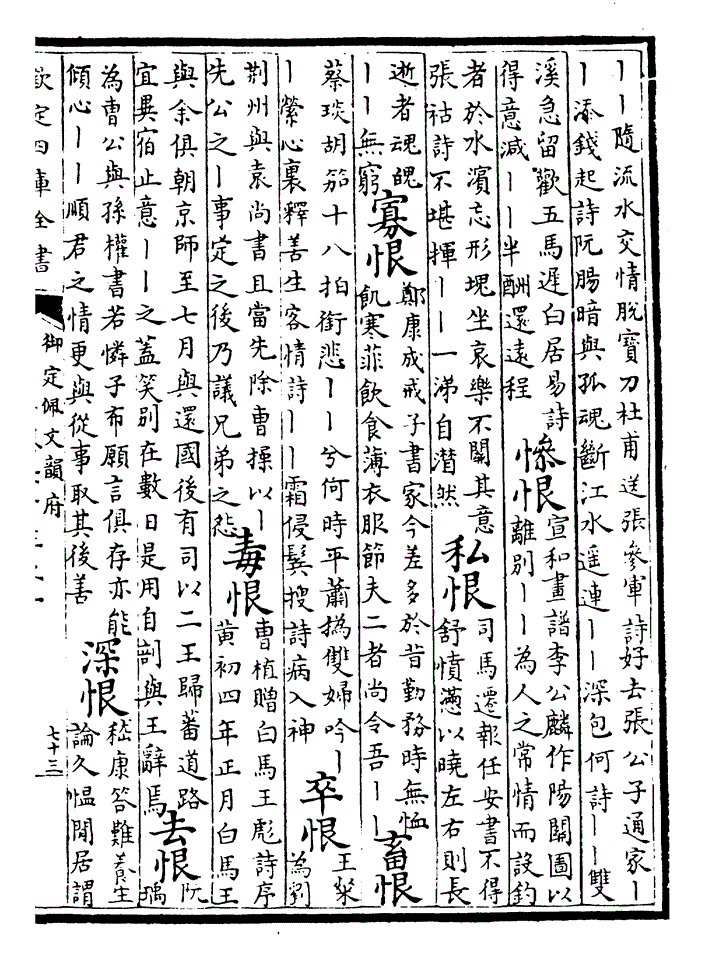 ——隨流水交情脫寶刀杜甫送張參軍詩好去張公子通家—
—添錢起詩阮腸暗與孤魂斷江水遥連——深包何詩——雙
溪急留歡五馬遲白居易詩
得意減——半酬還遠程
慘恨
宣和畫譜李公麟作陽關圖以
離别——為人之常情而設釣
者於水濱忘形塊坐哀樂不關其意
張祜詩不堪揮——一涕自潸然
私恨
司馬遷報任安書不得
舒憤懣以曉左右則長
逝者魂魄
——無窮
寡恨
鄭康成戒子書家今差多於昔勤務時無恤
飢寒菲飲食薄衣服節夫二者尚令吾——
畜恨
蔡琰胡笳十八拍銜悲——兮何時平蕭撝雙婦吟—
—縈心裏釋善生客情詩——霜侵鬓搜詩病入神
卒恨
王粲
為劉
荆州與袁尚書且當先除曹操以—
先公之—事定之後乃議兄弟之怨
毒恨
曹植贈白馬王彪詩序
黄初四年正月白馬王
與余俱朝京師至七月與還國後有司以二王歸蕃道路
宜異宿止意——之蓋笑别在數日是用自剖與王辭焉
去恨
阮
瑀
為曹公與孫權書若憐子布願言俱存亦能
傾心——順君之情更與從事取其後善
深恨
嵇康答難養生
論久愠閒居謂
欽定四庫全書
御定佩文韻府
七十三